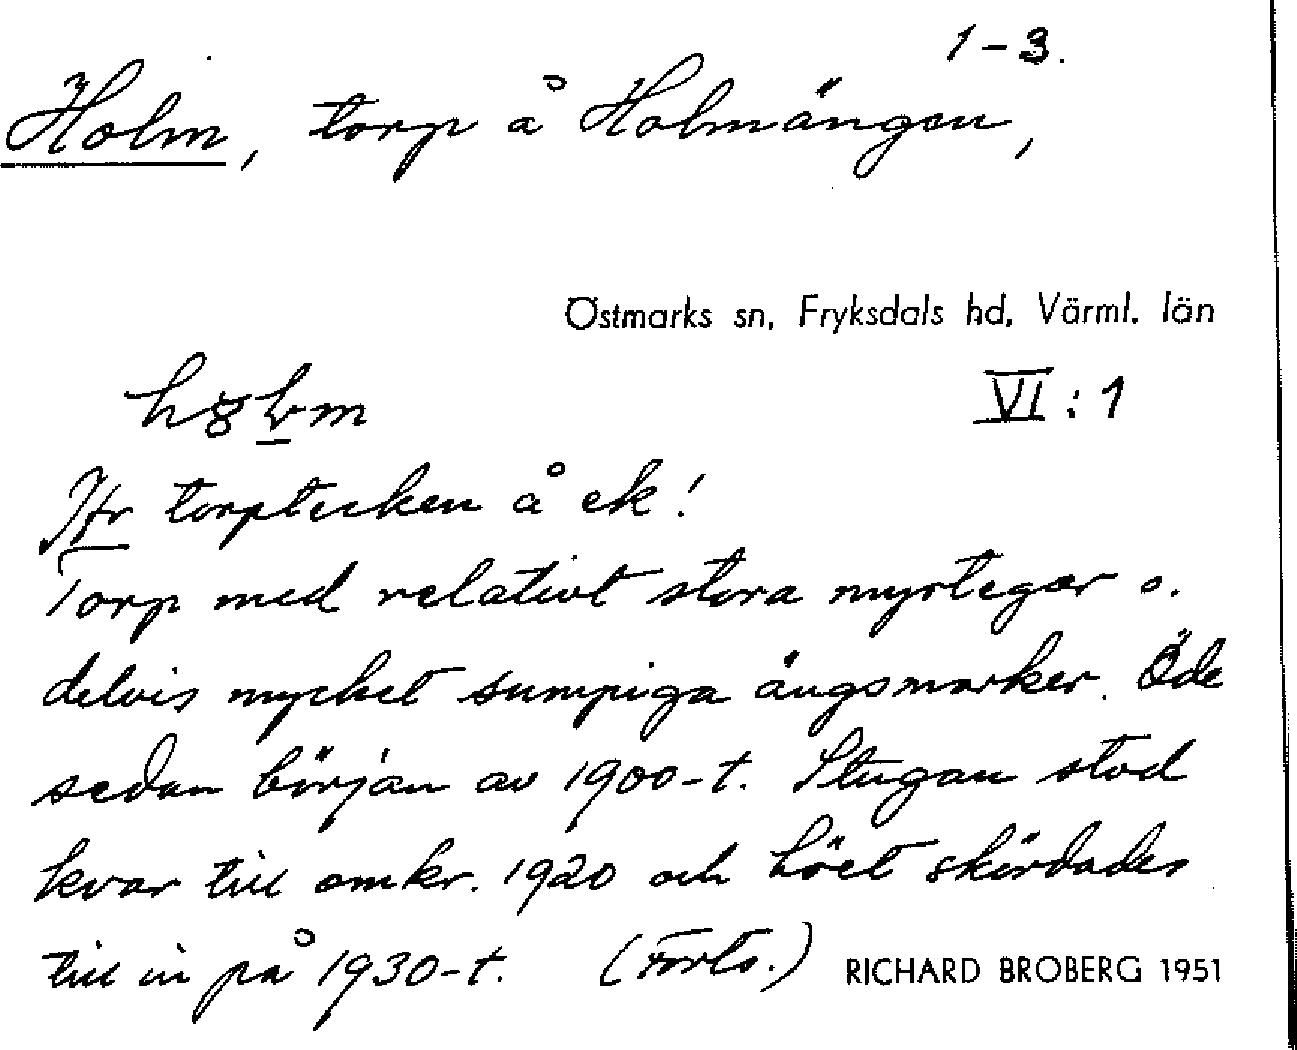 1-3.
Holm, torp å Holmängen,
Östmarks sn, Fryksdals hd, Värml. län
VI:1
Jfr torptecken å ek!
Torp med relativt stora myrtegar o.
delvis mycket sumpiga ängsmarker. Öde
sedan början av 1900-t. Stugan stod
kvar till omkr. 1920 och höet skördades
till in på 1930-t. (Forts.)
RICHARD BROBERG 1951